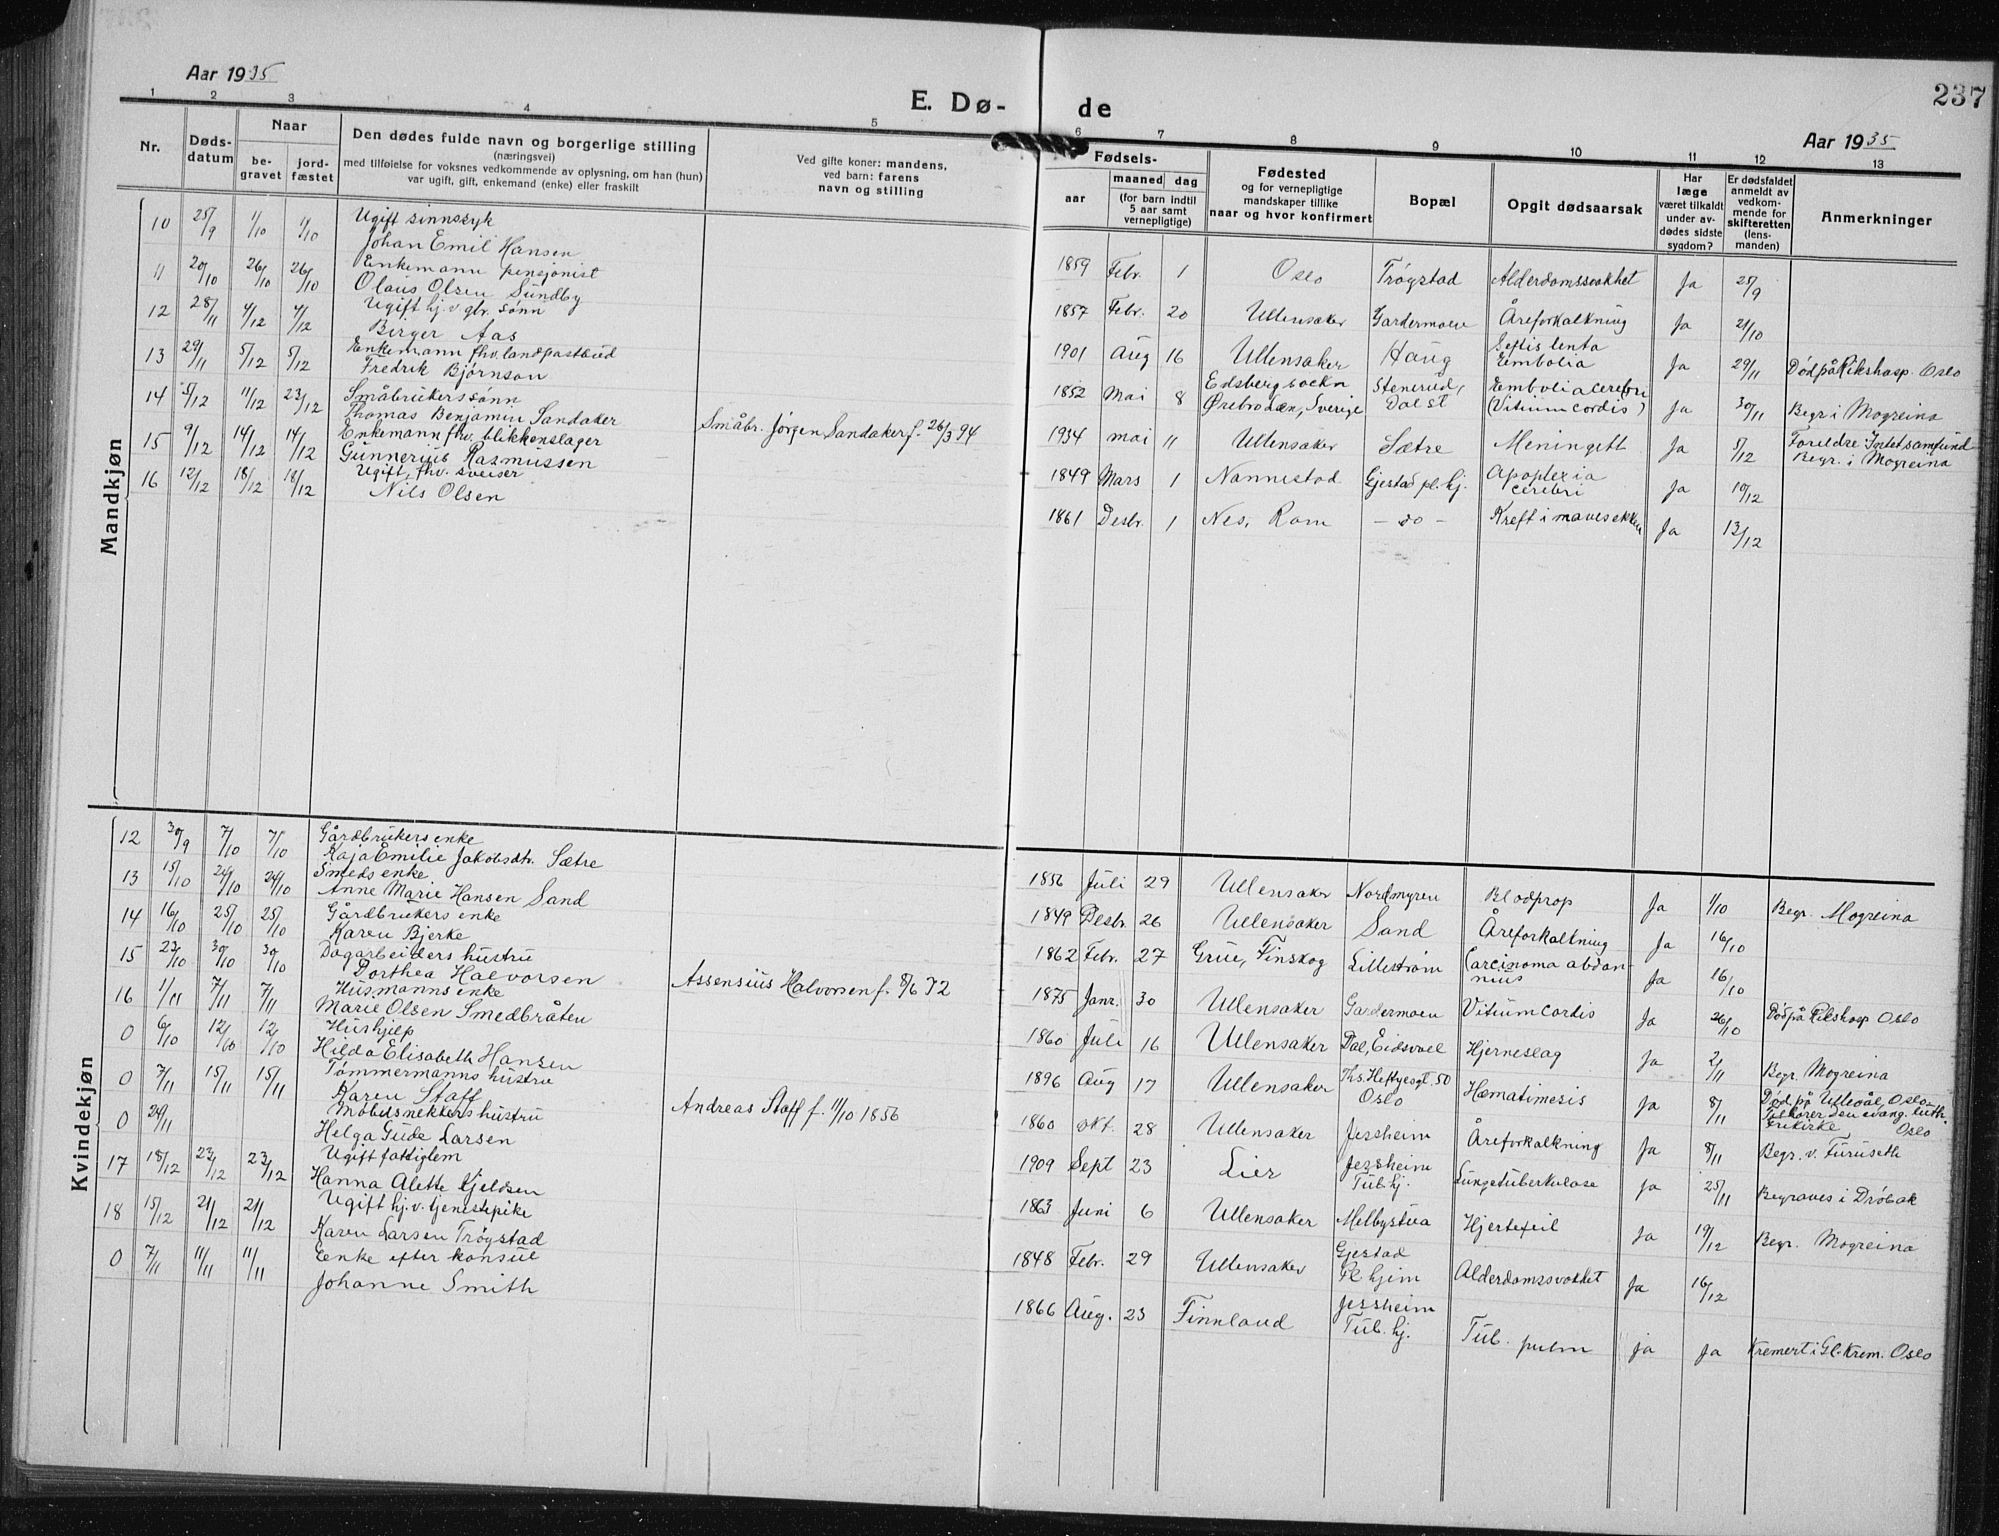 Aar 1935
E. Dø- de
237
Aar 1935
1 2 3 4 5 6 7 8 9 10 11 12 13
Nr.
Døds-
datum
Naar
be-
gravet
jord-
fæstet
Den dødes fulde navn og borgerlige stilling
(næringsvei)
med tilføielse for voksnes vedkommende av oplysning, om han (hun)
var ugift, gift, enkemand (enke) eller fraskilt
Ved gifte koner: mandens,
ved barn: farens
navn og stilling
Fødsels-
aar
maaned dag
(for barn indtil
5 aar samt
vernepligtige)
Fødested
og for vernepligtige
mandskaper tillike
naar og hvor konfirmert
Bopæl
Opgit dødsaarsak
Har
læge
været tilkaldt
under av-
dødes sidste
sygdom?
Er dødsfaldet
anmeldt av
vedkom-
mende for
skifteretten
(lens-
manden)
Anmerkninger
Mandkjøn
10 25/9 1/10 1/10 Ugift sinnssyk
Johan Emil Hansen
1859 Febr. 1 Oslo Trøgstad Alderdomssvakhet Ja 25/9
11 20/10 26/10 26/10 Enkemann pensjonist
Olaus Olsen Sundby
1857 Febr. 20 Ullensaker Gardermoen Åreforkalkning Ja 21/10
12 28/11 4/12 4/12 Ugift hj. v gbr. sønn
Birger Aas
1901 Aug 16 Ullensaker Haug Sepsis lenta
Embolia Ja 29/11 Død på Rikshosp. Oslo
13 29/11 5/12 5/12 Enkemann fhv. landpostbud
Fredrik Bjørnson
1852 Mai 8 Edsberg sockn
Örebro län, Sverige Stenerud,
Dal st Embolia cerebri
(Vitium cordis) Ja 30/11 Begr. i Mogreina
14 5/12 11/12 23/12 Småbrukerssønn
Thomas Benjamin Sandaker
Småbr. Jørgen Sandaker f. 26/3 94
1934 mai 11 Ullensaker Sætre Meningitt Ja 5/12 Foreldre Intet samfund
Begr. i Mogreina
15 9/12 14/12 14/12 Enkemann fhv. blikkenslager
Gunnerius Rasmussen
1849 Mars 1 Nannestad Gjestad pl. hj. Apoplexia
cerebri Ja 10/12
16 12/12 18/12 18/12 Ugift, fhv. sveiser
Nils Olsen
1861 Desbr. 1 Nes, Rom - do - Kreft i mavesekken Ja 13/12
Kvindekjøn
12 30/9 7/10 7/10 Gårdbrukers enke
Kaja Emilie Jakobsdtr. Sætre
1856 Juli 29 Ullensaker Nordmyren Blodprop Ja 1/10 Begr. Mogreina
13 15/10 24/10 24/10 Smeds enke
Anne Marie Hansen Sand
1849 Desbr. 26 Ullensaker Sand Åreforkaltning Ja 16/10
14 16/10 25/10 25/10 Gårdbrukers enke
Karen Bjerke
1862 Febr. 27 Grue, Finskog Lillestrøm Carcinoma abdan-
nius Ja 16/10
15 23/10 30/10 30/10 Dagarbeiders hustru
Dorthea Halvorsen
Assensius Halvorsen f. 8/6 72
1875 Janr. 30 Ullensaker Gardermoen Vitium cordis Ja 26/10 Død på Rikshosp Oslo
16 1/11 7/11 7/11 Husmanns enke
Marie Olsen Smedbråten
1860 Juli 16 Ullensaker Dal, Eidsvoel Hjerneslag Ja 2/11 Begr. Mogreina
0 6/10 12/10 12/10 Hushjelp
Hilda Elisabeth Hansen
1896 Aug 17 Ullensaker Ths. Heftyesgt. 50
Oslo Hæmatimesis Ja 8/11 Død på Ullevål, Oslo
Tilhører den evang. luth.
frikirke Oslo
0 7/11 15/11 15/11 Tømmermanns hustru
Karen Staff
Andreas Staff f. 11/10 1856
1860 okt. 28 Ullensaker Jessheim Åreforkalkning Ja 8/11 Begr. v. Furuseth
0 24/11 Møbelsnekkers hustru
Helga Gude Larsen
1909 Sept 23 Lier Jessheim
Tub. hj. Lungetuberkulose Ja 25/11 Begraves i Drøbak
17 18/12 23/12 23/12 Ugift fattiglem
Hanna Alette Kjeldsen
1863 Juni 6 Ullensaker Melbystua Hjertefeil Ja 19/12 Begr. Mogreina
18 15/12 21/12 21/12 Ugift hj. v. tjenestepike
Karen Larsen Trøgstad
1848 Febr. 29 Ullensaker Gjestad
Pl hjem Alderdomssvakhet Ja 16/12
0 7/11 11/11 11/11 Enke efter konsul
Johanne Smith
1866 Aug. 23 Finnland Jessheim
Tub. hj. Tub. pulm ja Ja Kremert i Gl. Krem. Oslo